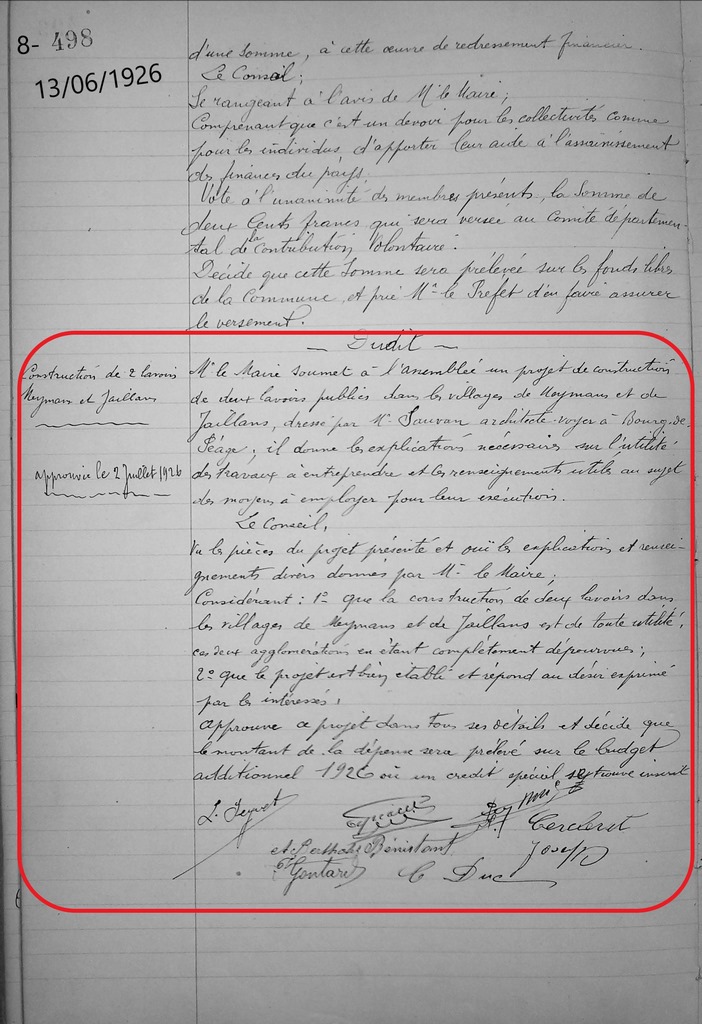 8- 498
13/06/1926
d'une somme, à cette œuvre de redressement financier.
Le Conseil;
Se rangeant à l'avis de Mr le Maire;
Comprenant que c'est un devoir pour les collectivités comme
pour les individus d'apporter leur aide à l'assainissement
des finances du pays;
Vote à l'unanimité des membres présents, la Somme de
deux Cents francs qui sera versée au Comité départemen-
tal de la Contribution Volontaire.
Décide que cette Somme sera prélevée sur les fonds libres
de la Commune, et prie Mr le Préfet d'en faire assurer
le versement.
— Dudit —
Construction de 2 lavoirs
Meymans et Jaillans
approuvée le 2 Juillet 1926
Mr le Maire soumet à l'assemblée un projet de construction
de deux lavoirs publics dans les villages de Meymans et de
Jaillans, dressé par Mr Sauvan architecte-voyer à Bourg-de-
Péage; il donne les explications nécessaires sur l'utilité
des travaux à entreprendre et les renseignements utiles au sujet
des moyens à employer pour leur exécution.
Le Conseil,
Vu les pièces du projet présenté et ouï les explications et rensei-
gnements divers donnés par Mr le Maire;
Considérant: 1º que la construction de deux lavoirs dans
les villages de Meymans et de Jaillans est de toute utilité,
ces deux agglomérations en étant complètement dépourvues;
2º que le projet est bien établi et répond au désir exprimé
par les intéressés;
approuve ce projet dans tous ses détails et décide que
le montant de la dépense sera prélevé sur le budget
additionnel 1926 où un crédit spécial se trouve inscrit
Cercleret
Bénistant Joseph
C Duc